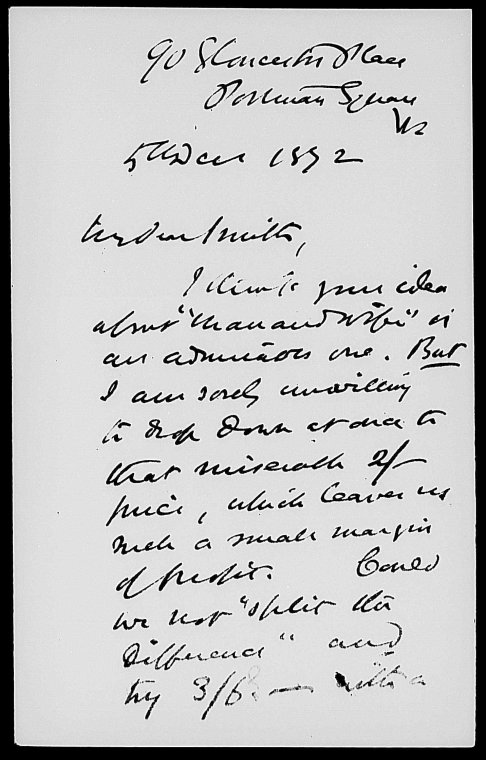 90 Gloucester Place
Portman Square
W
5th Dec 1872
My dear Smith,
I think your idea
about "Man and Wife" is
an admirable one. But
I am sorely unwilling
to drop down at once to
that miserable 2/-
price, which leaves us
such a small margin
of profit. Could
we not "split the
difference" and
try 3/6 —